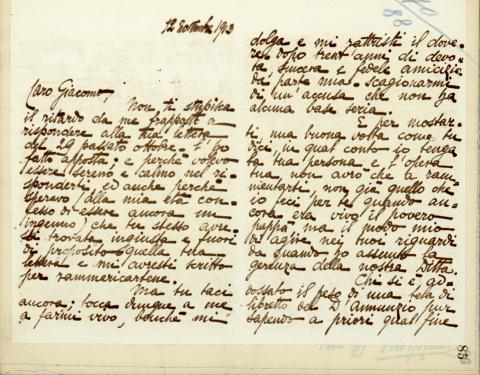 12 Novembre 1913
Caro Giacomo,
Non ti stupisca
il ritardo da me frapposto a
rispondere alla tua lettera
del 29 passato ottobre. L'ho
fatto apposta: e perchè volevo
essere sereno e calmo nel ri-
sponderti, ed anche perchè
speravo (alla mia età con-
fesso di essere ancora un
ingenuo) che tu stesso avre-
sti trovata ingiusta e fuori
di proposito quella tua
lettera e mi avresti scritto
per rammaricartene.
Ma tu taci
ancora; tocca dunque a me
a farmi vivo, benchè mi
88
dolga e mi rattristi il dove-
re, dopo trent'anni di devo-
ta, sincera e fedele amicizia
da parte mia, scagionarmi
di un'accusa che non ha
alcuna base seria.
E per mostrar-
ti, una buona volta come tu
dici, in qual conto io tenga
la tua persona e l'opera
tua, non avrò che a ram-
mentarti non già quello che
io feci per te quando an-
cora era vivo il povero
pappà, ma il modo mio
di agire nei tuoi riguardi
da quando ho assunto la
gerenza della nostra Ditta.
Chi si è ad-
dossato il peso di una tela di
libretto da D'Annunzio pur
sapendo a priori qual fine
85